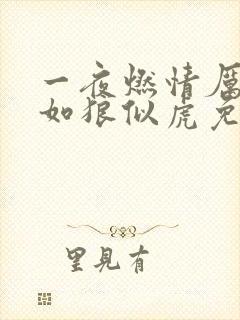 一夜燃情厉
如狼似虎免
里見有